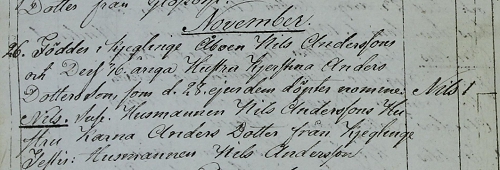 Dotter från
November.
26. Föddes i Kjeglinge Åboen Nils Anderssons
och Dess 36-åriga Hustru Kjerstina Anders
Dotters son som d. 28 ejusdem döptes nomine: Nils 1
Nils. Susc. Husmannen Nils Anderssons Hu
stru Karna Anders Dotter från Kjeglinge
Testis: Husmannen Nils Andersson